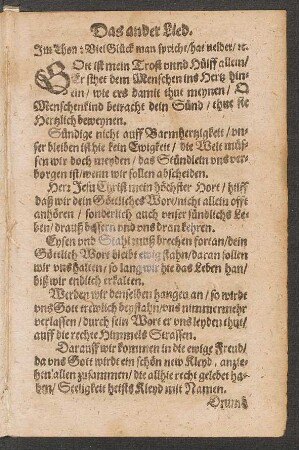 Das ander Lied.
Im Thon: Viel Glück man spricht/hat neider/ ꝛc.
GOtt ist mein Trost vnnd Hülff allein/
Er sihet dem Menschen ins Hertz hin-
ein/ wie ers damit thut meynen/ O
Menschenkind betracht dein Sünd/ thue sie
Hertzlich beweynen.
Sündige nicht auff Barmhertzigkeit/ vn-
ser bleiben ist hie kein Ewigkeit/ die Welt müs-
sen wir doch meyden/ das Stündlein vns ver-
borgen ist/wenn wir sollen abscheiden.
Herr Jesu Christ mein höchster Hort/ hilff
daß wir dein Göttliches Wort/nicht allein offt
anhören/ sonderlich auch vnser sündlichs Le-
ben/ drauß bessern vnd vns dran kehren.
Eysen vnd Stahl muß brechen fortan/dein
Göttlich Wort bleibt ewig stahn/daran sollen
wir vns halten/ so lang wir hie das Leben han/
biß wir endlich erkalten.
Werden wir denselben hangen an/ so wirdt
vns Gott trewlich beystahn/vns nimmermehr
verlassen/ durch sein Wort er vns leyden thut/
auff die rechte Himmels Strassen.
Darauff wir kommen in die ewige Frewd/
da vns Gott wirdt ein schön new Kleyd/ anzie-
hen allen zusammen/ die allhie recht gelebet ha-
ben/ Seeligkeit heists Kleyd mit Namen.
Drumb